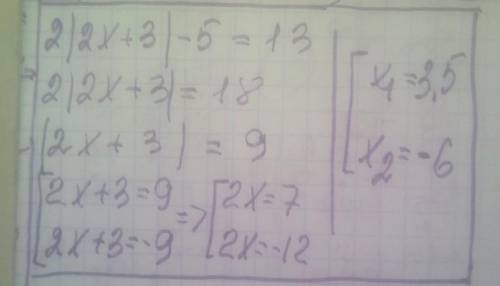 2|2x+3|-5=13
2|2x+3|=18
|2x+3|=9
[2x+3=9 => [2x=7
[2x+3=-9 [2x=-12
[x₁=3,5
[x₂=-6